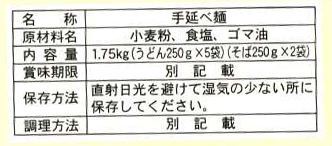 名称 手延べ麺
原材料名 小麦粉、食塩、ゴマ油
内容量 1.75kg(うどん250g×5袋)(そば250g×2袋)
賞味期限 別記載
保存方法 直射日光を避けて湿気の少ない所に
保存してください。
調理方法 別記載